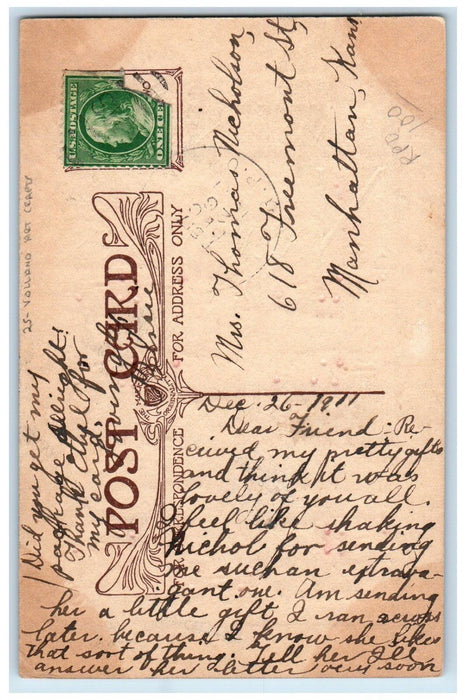 U.S. POSTAGE
ONE CENT
25- VOLLAND ART CRAFTS
RPO
100
POST CARD
FOR ADDRESS ONLY
FOR CORRESPONDENCE
Mrs. Thomas Nicholson,
618 Freemont St,
Manhattan, Kans
Dec. 26-1911
Dear Friend:- Re-
ceived my pretty gifts
and think it was
lovely of you all.
I feel like shaking
Nichol for sending
me such an extrava-
gant one. Am sending
her a little gift I ran across
later. because I know she likes
that sort of thing. Tell her I'll
answer her letter very soon
Did you get my
package alright?
Thank Ethel for
my card.
Lovingly